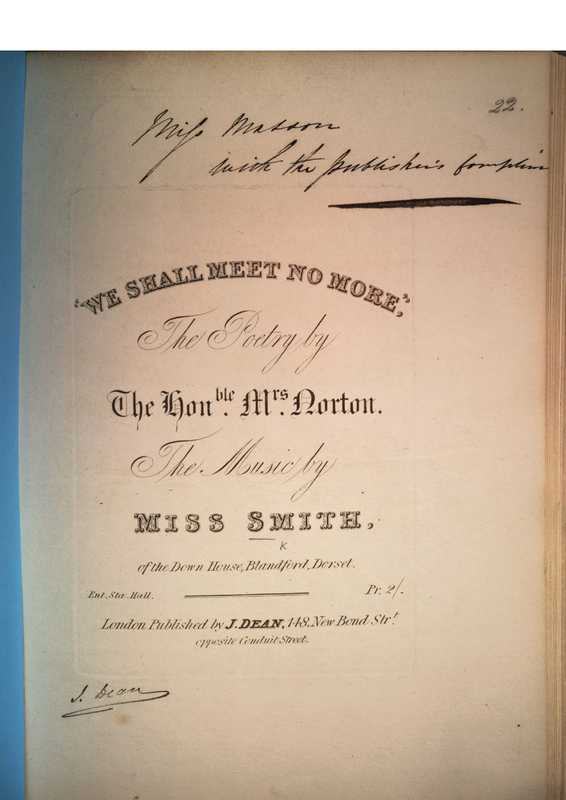 22.
Miss Masson
with the Publisher's Complim
"WE SHALL MEET NO MORE,"
The Poetry by
The Honble. Mrs. Norton.
The Music by
MISS SMITH,
K
of the Down House, Blandford, Dorset.
Ent. Sta. Hall. Pr. 2/.
London Published by J. DEAN, 148, New Bond Strt.
opposite Conduit Street.
J. Dean